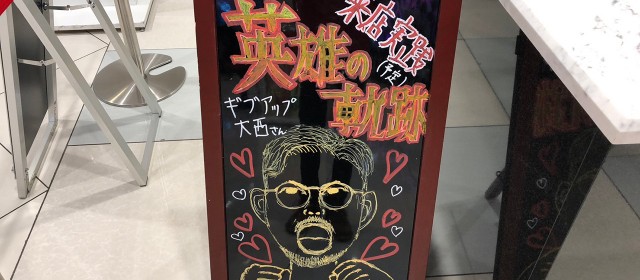 来店実践
(予定)
英雄の
軌跡
ギブアップ
大西さん